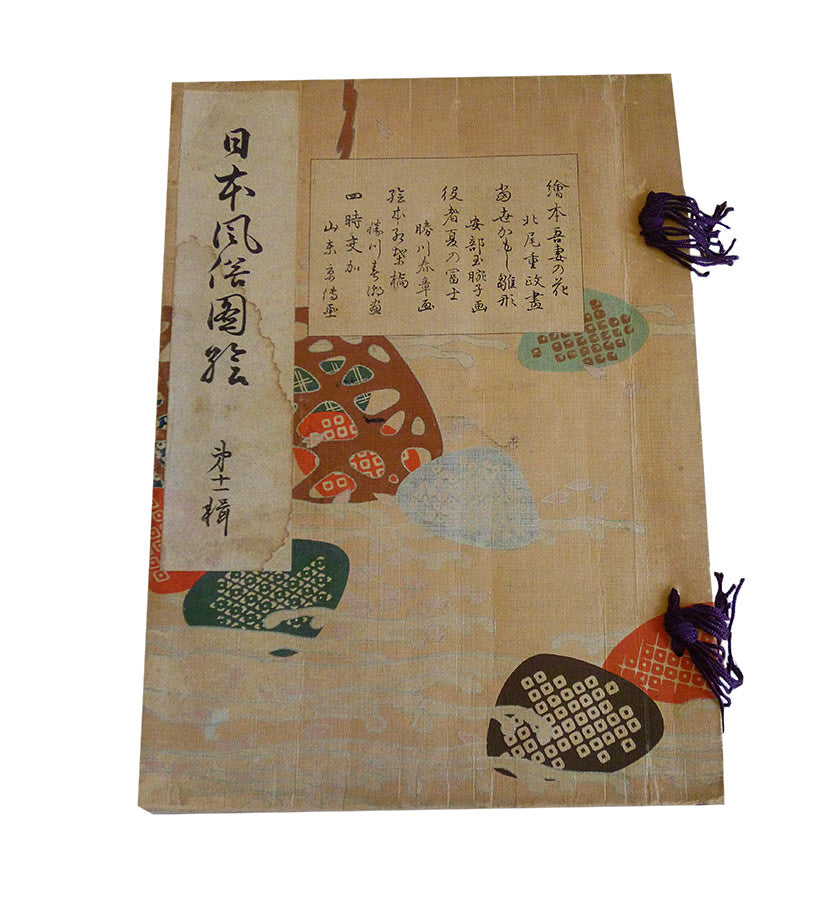 日本風俗圖絵
第十一輯
繪本吾妻の花
北尾重政畫
當世かもし雛形
安部玉腕子画
役者夏の冨士
勝川春章画
絵本紅葉橋
勝川春潮畫
四時交加
山东京傳画